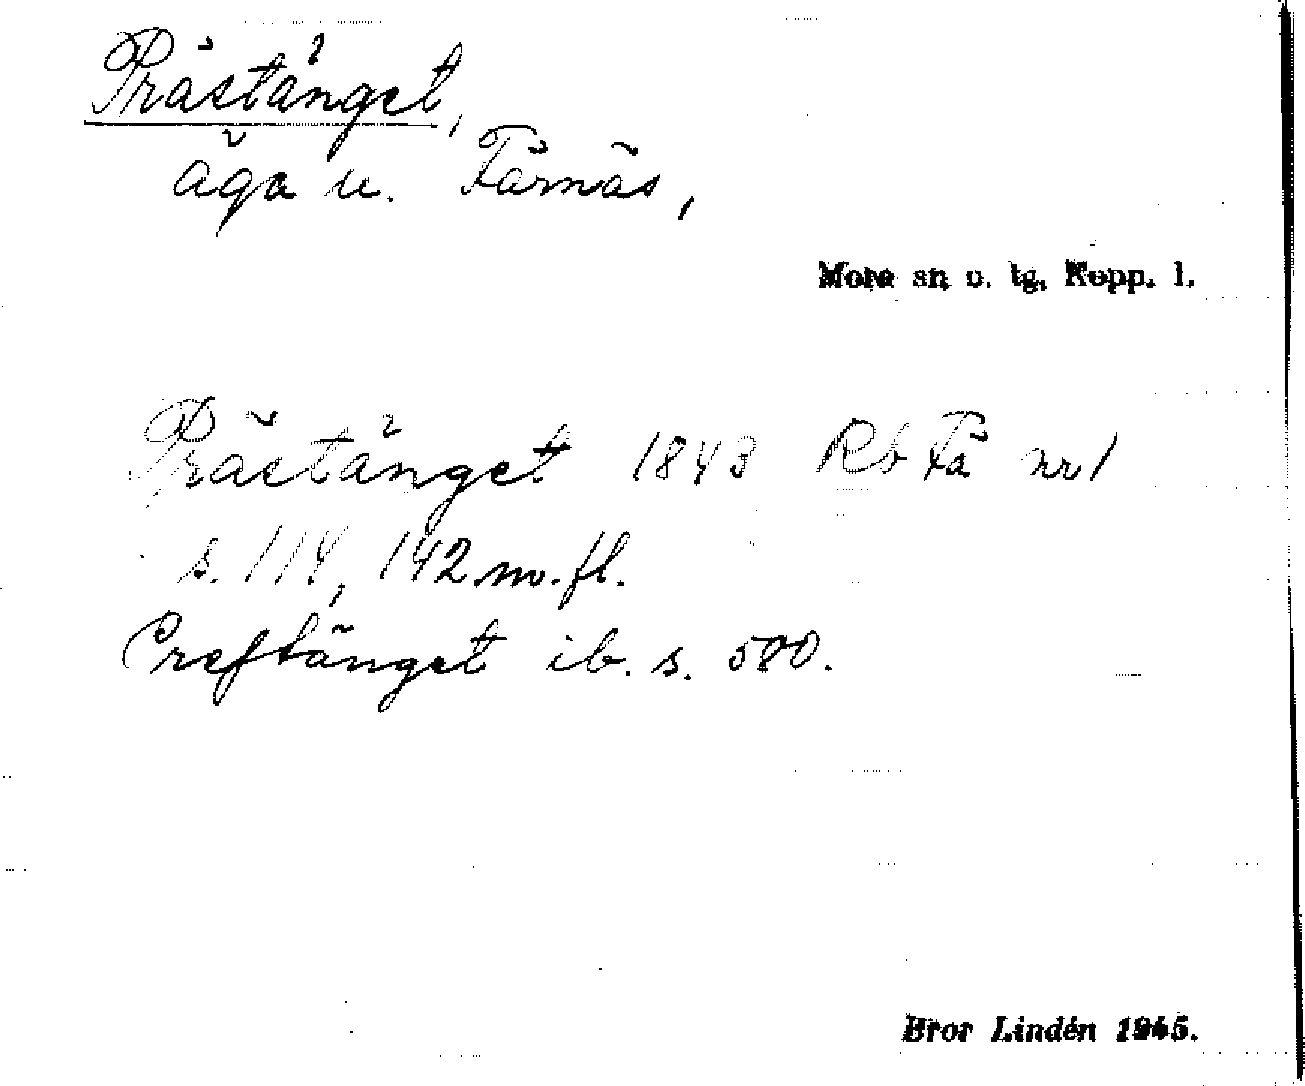 Prästänget,
äga u. Färnäs,
Mora sn o. tg, Kopp. l.
Prästänget 1843 Rb Fä nr 1
s. 114, 142 m.fl.
Preftänget ib. s. 580.
Bror Lindén 1945.